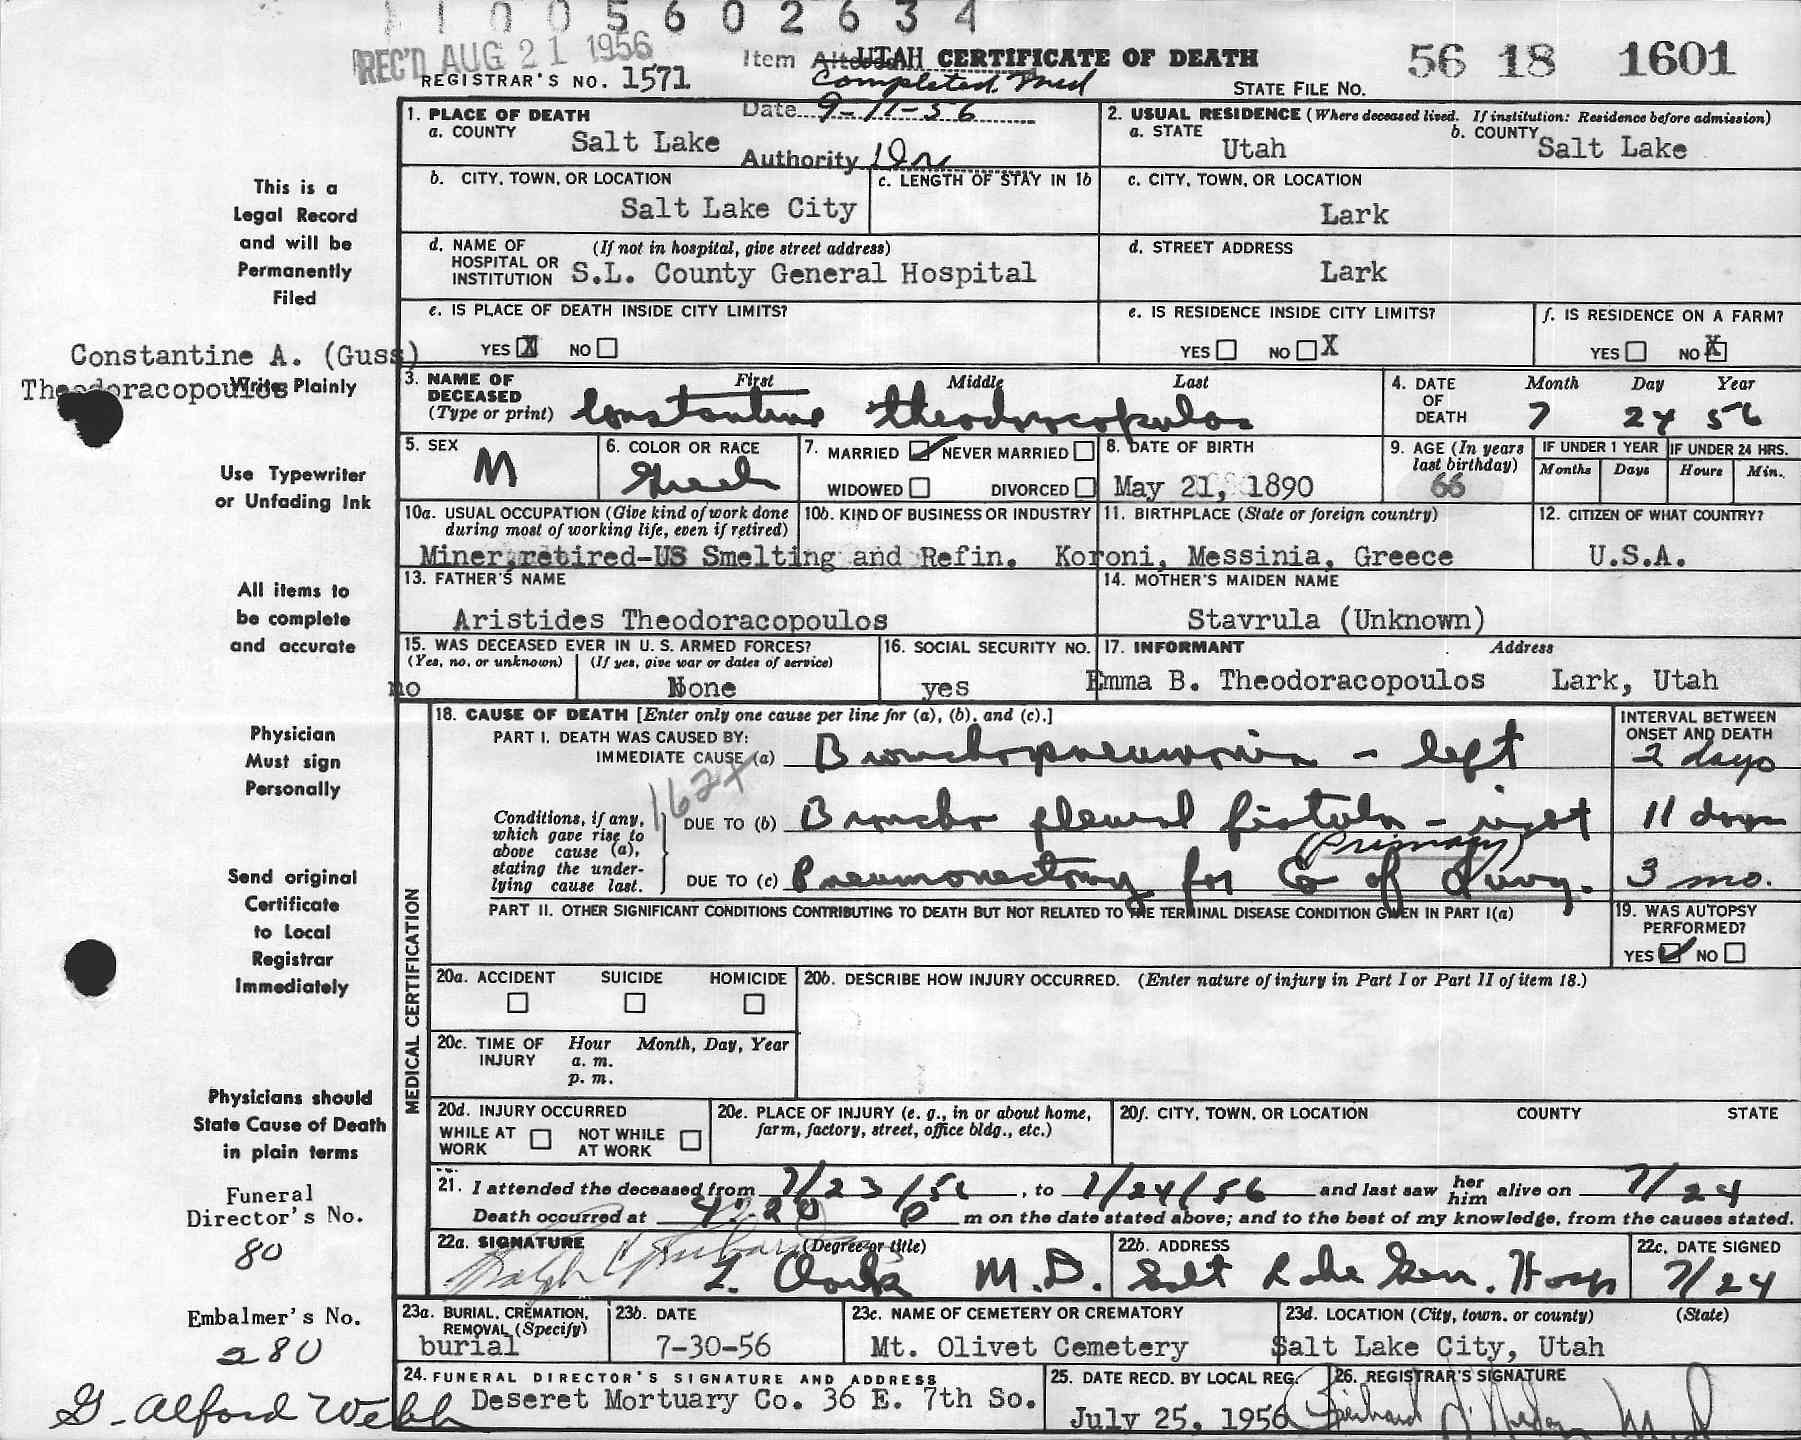 1 1 0 0 5 6 0 2 6 3 4
REC'D AUG 21 1956
Item UTAH CERTIFICATE OF DEATH
56 18 1601
REGISTRAR'S NO. 1571
Completed Med
STATE FILE No.
Date 9-11-56
Authority Dr
1. PLACE OF DEATH
a. COUNTY Salt Lake
2. USUAL RESIDENCE (Where deceased lived. If institution: Residence before admission)
a. STATE Utah b. COUNTY Salt Lake
b. CITY, TOWN, OR LOCATION Salt Lake City
c. LENGTH OF STAY IN 1b
c. CITY, TOWN, OR LOCATION Lark
d. NAME OF HOSPITAL OR INSTITUTION (If not in hospital, give street address) S.L. County General Hospital
d. STREET ADDRESS Lark
e. IS PLACE OF DEATH INSIDE CITY LIMITS?
YES X NO
e. IS RESIDENCE INSIDE CITY LIMITS?
YES NO X
f. IS RESIDENCE ON A FARM?
YES NO X
This is a
Legal Record
and will be
Permanently
Filed
Constantine A. (Guss)
Theodoracopoulos
Write Plainly
3. NAME OF DECEASED (Type or print) First Middle Last
Constantine Theodorocopulos
4. DATE OF DEATH Month Day Year
7 24 56
5. SEX M
6. COLOR OR RACE Greek
7. MARRIED NEVER MARRIED
WIDOWED DIVORCED
8. DATE OF BIRTH May 21, 1890
9. AGE (In years last birthday) 66
IF UNDER 1 YEAR Months Days
IF UNDER 24 HRS. Hours Min.
Use Typewriter
or Unfading Ink
10a. USUAL OCCUPATION (Give kind of work done during most of working life, even if retired)
10b. KIND OF BUSINESS OR INDUSTRY
Miner,retired-US Smelting and Refin.
11. BIRTHPLACE (State or foreign country)
Koroni, Messinia, Greece
12. CITIZEN OF WHAT COUNTRY?
U.S.A.
All items to
be complete
and accurate
13. FATHER'S NAME
Aristides Theodoracopoulos
14. MOTHER'S MAIDEN NAME
Stavrula (Unknown)
15. WAS DECEASED EVER IN U. S. ARMED FORCES?
(Yes, no, or unknown) (If yes, give war or dates of service)
no None
16. SOCIAL SECURITY NO.
yes
17. INFORMANT Address
Emma B. Theodoracopoulos Lark, Utah
Physician
Must sign
Personally
MEDICAL CERTIFICATION
18. CAUSE OF DEATH [Enter only one cause per line for (a), (b), and (c).]
INTERVAL BETWEEN ONSET AND DEATH
PART I. DEATH WAS CAUSED BY:
IMMEDIATE CAUSE (a) Bronchopneumonia - left 2 days
162x
Conditions, if any, which gave rise to above cause (a), stating the underlying cause last.
DUE TO (b) Broncho pleural fistula - right 11 days
(Primary)
DUE TO (c) Pneumonectomy for Ca of Lung. 3 mo.
PART II. OTHER SIGNIFICANT CONDITIONS CONTRIBUTING TO DEATH BUT NOT RELATED TO THE TERMINAL DISEASE CONDITION GIVEN IN PART I(a)
19. WAS AUTOPSY PERFORMED?
YES NO
Send original
Certificate
to Local
Registrar
Immediately
20a. ACCIDENT SUICIDE HOMICIDE
20b. DESCRIBE HOW INJURY OCCURRED. (Enter nature of injury in Part I or Part II of item 18.)
20c. TIME OF INJURY Hour Month, Day, Year
a. m.
p. m.
20d. INJURY OCCURRED
WHILE AT WORK NOT WHILE AT WORK
20e. PLACE OF INJURY (e. g., in or about home, farm, factory, street, office bldg., etc.)
20f. CITY, TOWN, OR LOCATION COUNTY STATE
Physicians should
State Cause of Death
in plain terms
21. I attended the deceased from 7/23/56, to 7/24/56 and last saw her him alive on 7/24
Death occurred at 4:20 P m on the date stated above; and to the best of my knowledge, from the causes stated.
Funeral
Director's No.
80
22a. SIGNATURE (Degree or title)
Ralph C L. Clark M.D.
22b. ADDRESS
Salt Lake Gen. Hosp
22c. DATE SIGNED
7/24
Embalmer's No.
280
23a. BURIAL, CREMATION, REMOVAL (Specify)
burial
23b. DATE
7-30-56
23c. NAME OF CEMETERY OR CREMATORY
Mt. Olivet Cemetery
23d. LOCATION (City, town, or county) (State)
Salt Lake City, Utah
24. FUNERAL DIRECTOR'S SIGNATURE AND ADDRESS
G. Alford Webb Deseret Mortuary Co. 36 E. 7th So.
25. DATE RECD. BY LOCAL REG.
July 25, 1956
26. REGISTRAR'S SIGNATURE